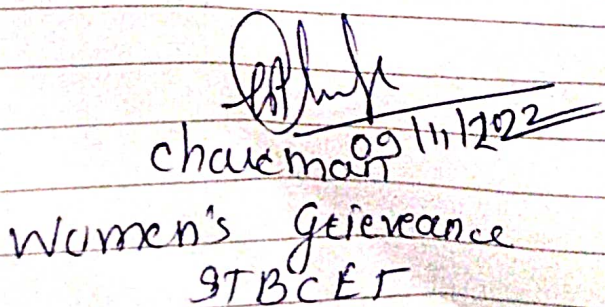 09/11/2022
Chairman
Women's Grieveance
STBCET